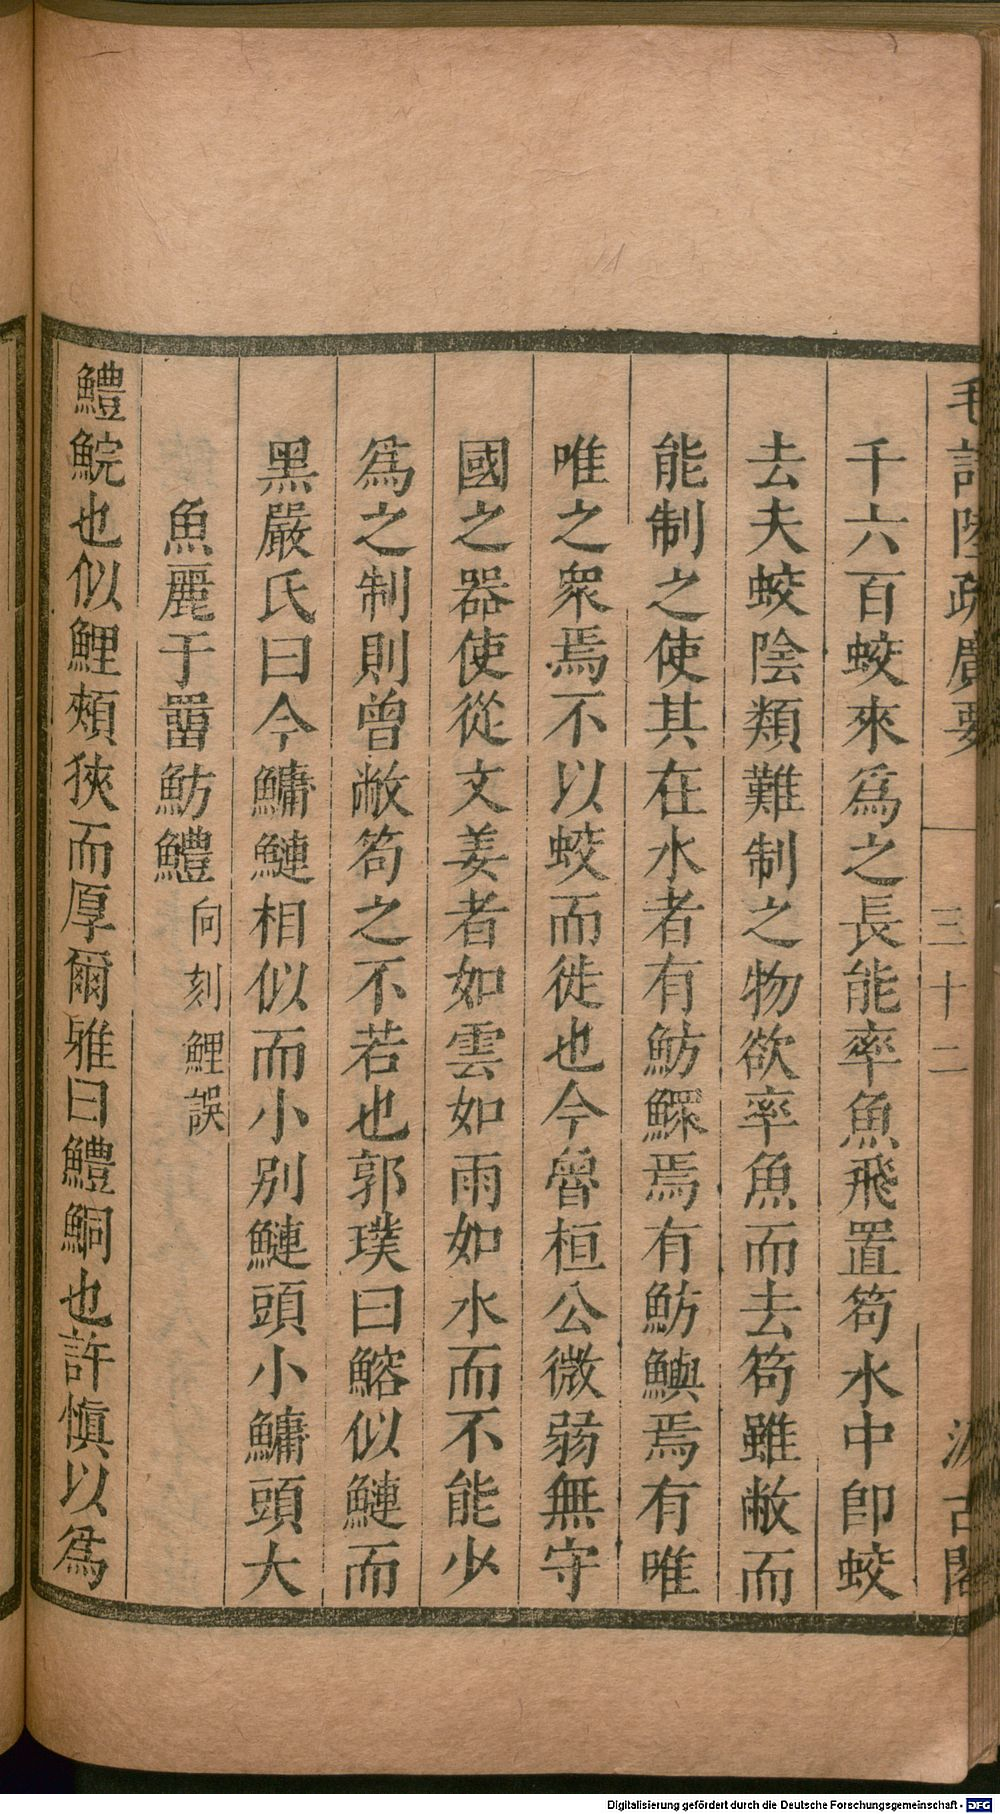 毛詩陸疏廣要
三十二
汲古閣
千六百蛟來爲之長能率魚飛置笱水中卽蛟
去夫蛟陰類難制之物欲率魚而去笱雖敝而
能制之使其在水者有魴鰥焉有魴鱮焉有唯
唯之衆焉不以蛟而徙也今魯桓公微弱無守
國之器使從文姜者如雲如雨如水而不能少
爲之制則曾敝笱之不若也郭璞曰鰫似鰱而
黑嚴氏曰今鱅鰱相似而小別鰱頭小鱅頭大
魚麗于罶魴鱧向刻鯉誤
鱧鯇也似鯉頰狹而厚爾雅曰鱧鮦也許愼以爲
Digitalisierung gefördert durch die Deutsche Forschungsgemeinschaft - DFG